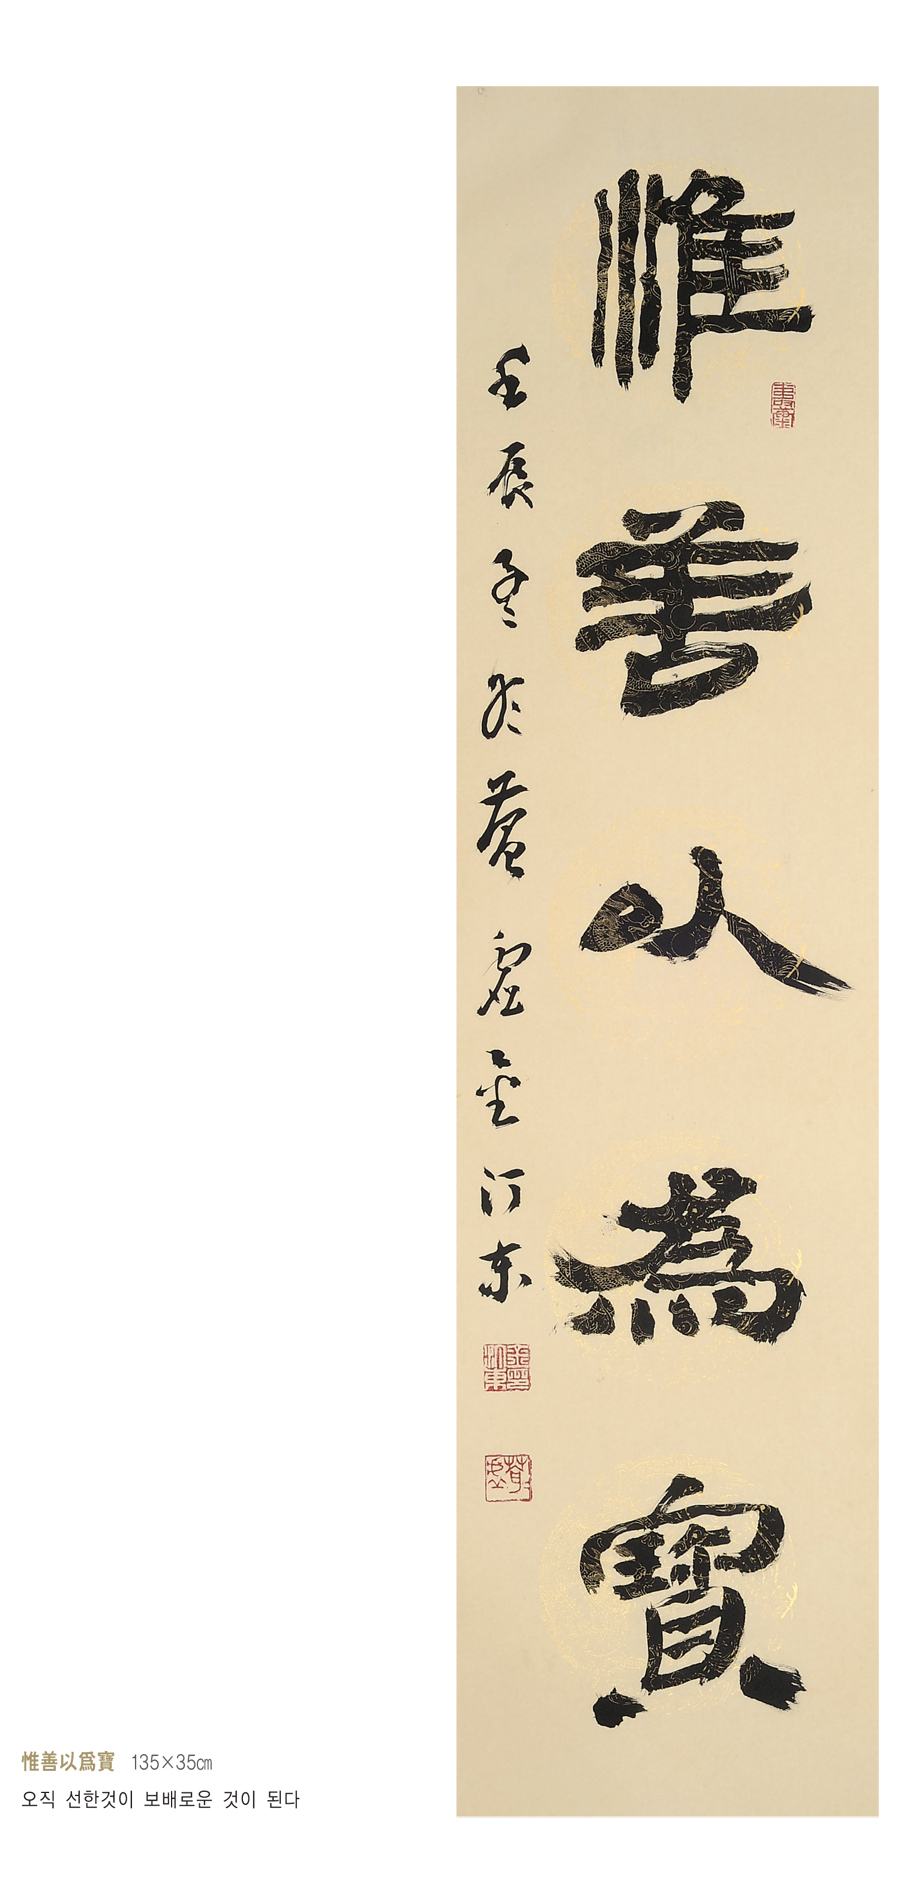 惟善以爲寶
壬辰冬於
惟善以爲寶 135×35㎝
오직 선한것이 보배로운 것이 된다